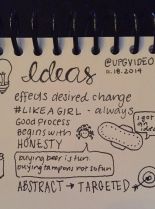 @UPGVIDEO
11.18.2014
Ideas
effects desired change
#LIKE A GIRL - always
GOOD PROCESS
begins with
HONESTY
I got an idea!
buying beer is fun.
buying tampons not so fun
ABSTRACT → TARGETED